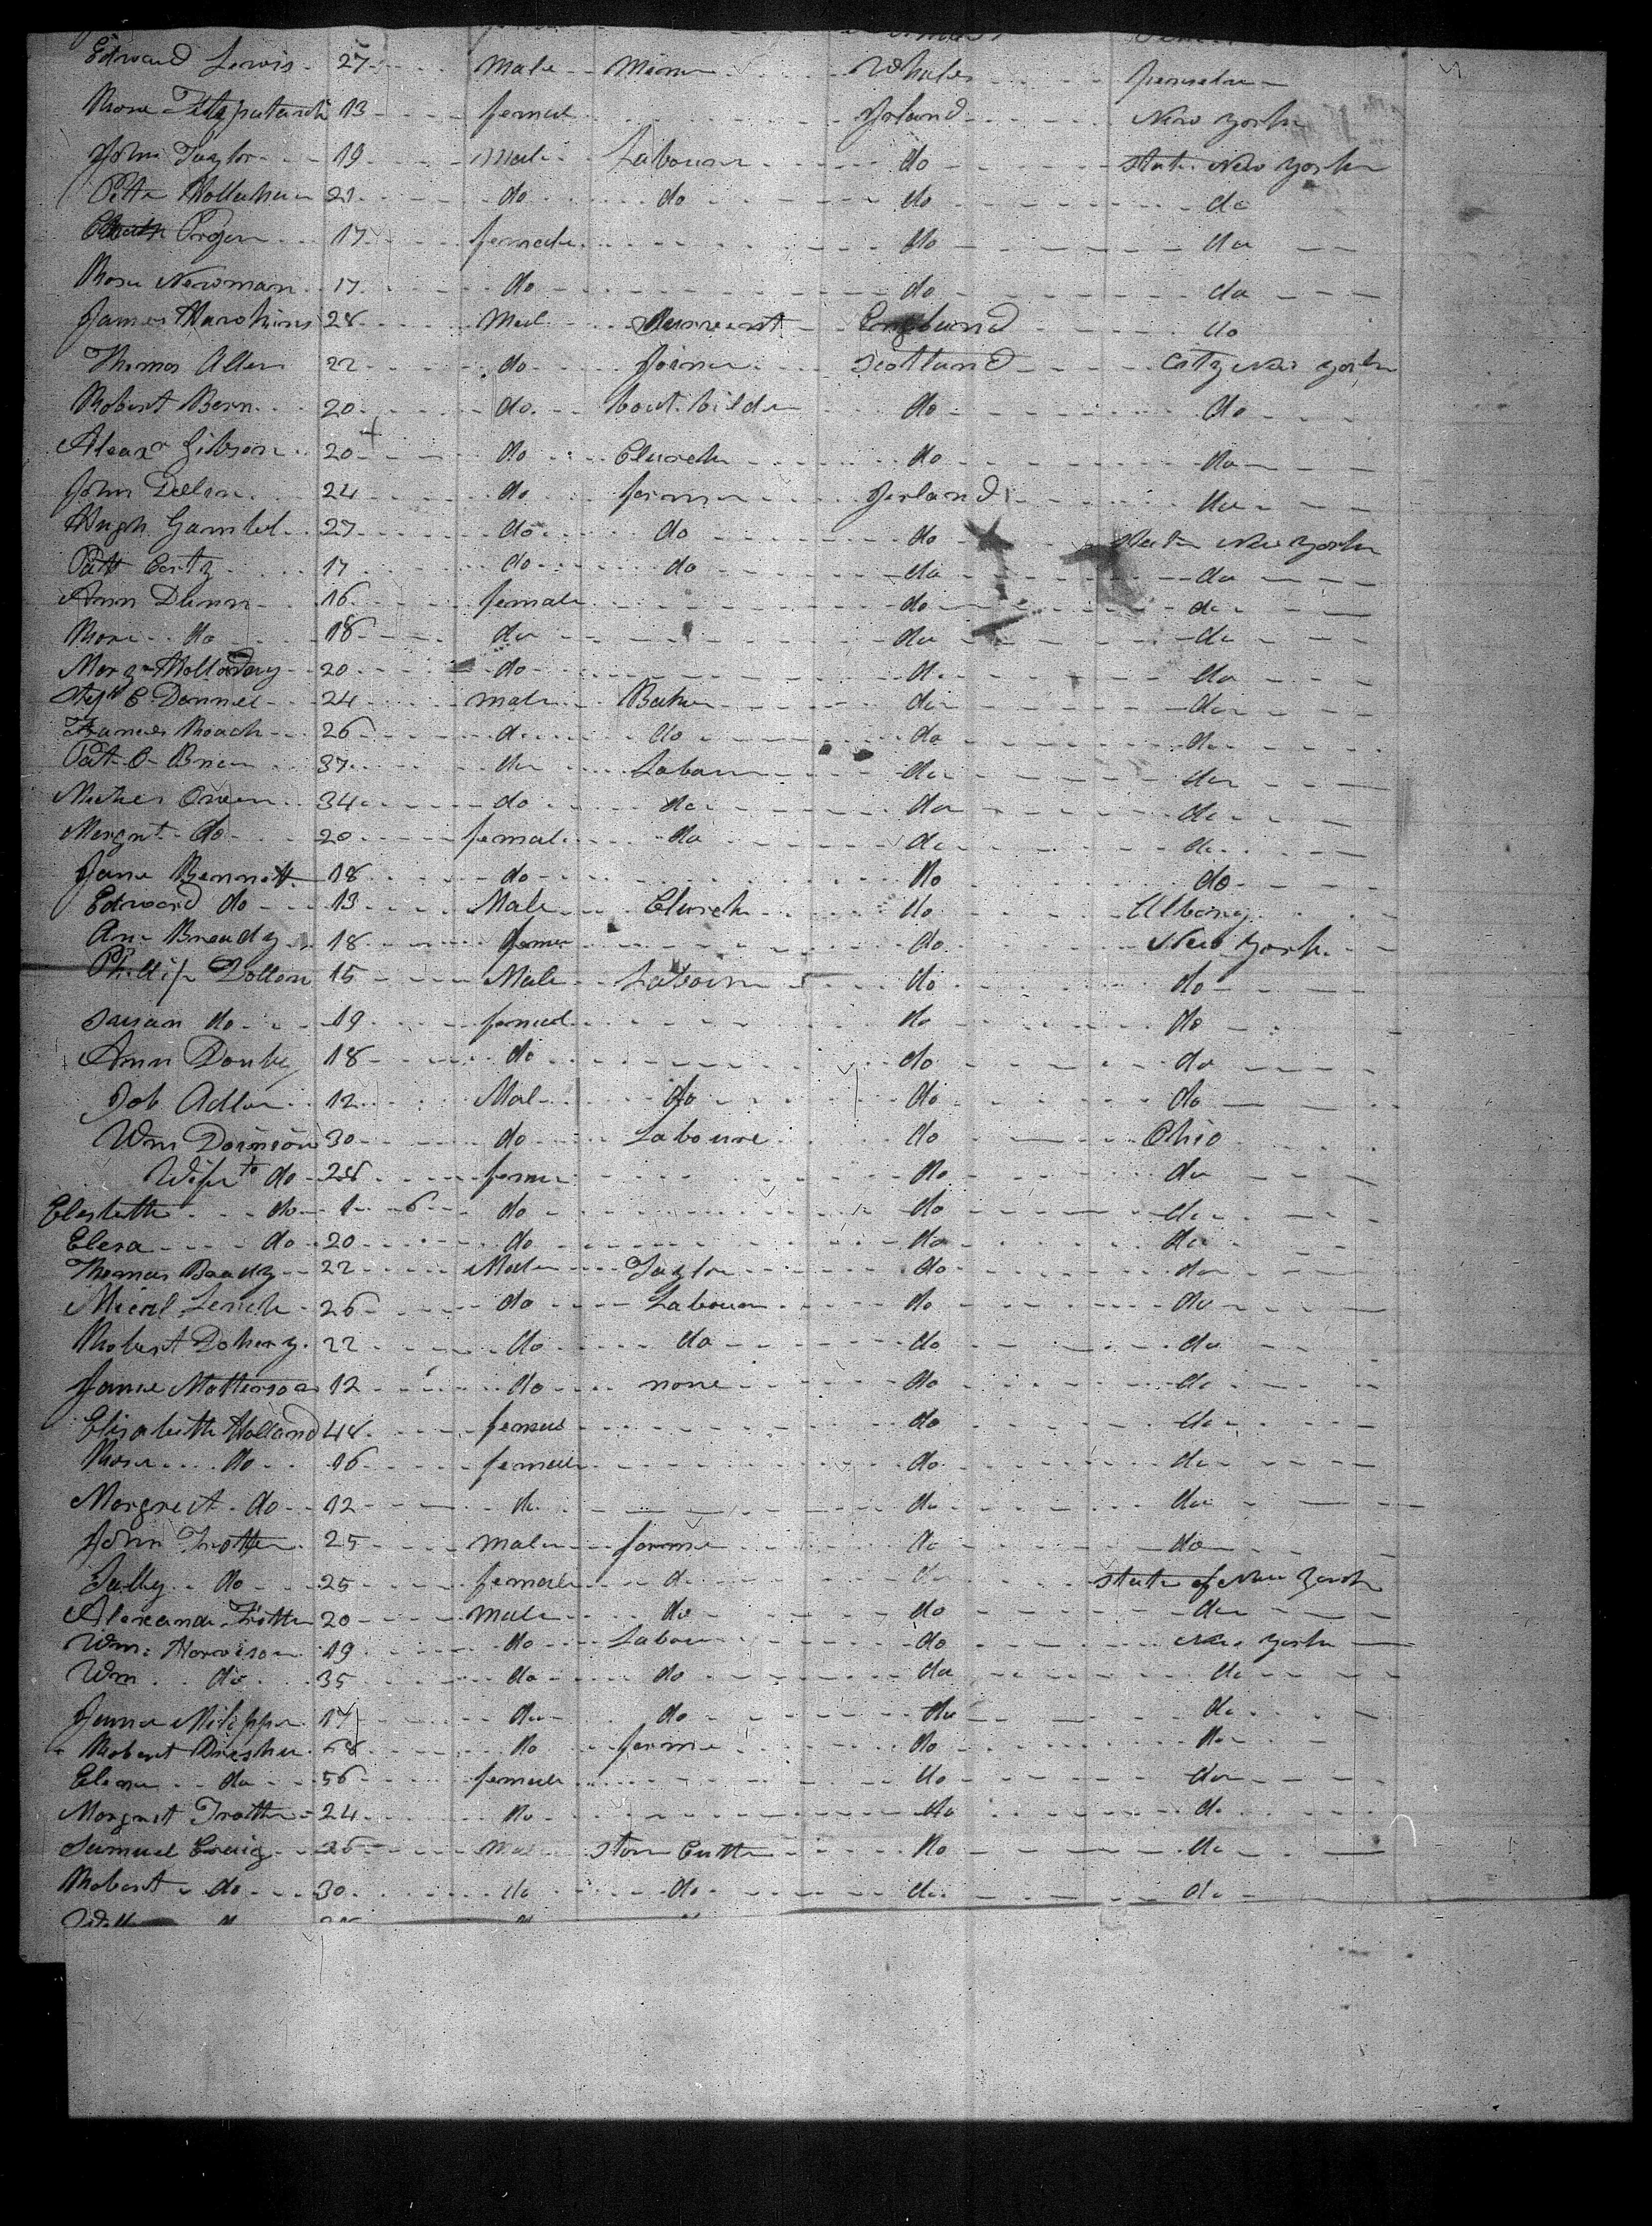 Edward Lewis 27 Male Miner Whales
Rose Fitspatarick 13 femal Irland New York
John Taylor 19 Male Labourer do State New York
Peter Hollahan 23 do do do do
17 female do do
Rose Newman 17 do do do
James Hawkins 28 Mal Servent England do
Thomas Allen 22 do Joiner Scotland City New York
Robert Bern 20 do bout bilder do do
Alexr Gibson 20 do Clurck do do
John Dillon 24 do farmer Jerland do
Hugh Gambel 27 do do do State New York
Patt 17 do do do do
Ann Dunn 16 female do do
Rose do 18 do do do
Mary Holladay 20 do do do
24 male Baker do do
Frances Roach 26 do do do do
Pat O Brien 37 do Labour do do
Owen 34 do do do do
Margrt do 20 female do do do
Jane Bennett 18 do do do
Edward do 13 Male Clurck do Albany
Ann Bready 18 femer do New York
Phillip Dollan 15 Male Labourer do do
Susan do 19 femal do do
Ann 18 do do do
Job Adlar 12 Mal do do do
Wm 30 do Laboure do Ohio
Wife to do 28 femer do do
Elesbeth do 1 6 do do do
Elesa do 20 do do do
Thomas Braedy 22 Male Taylor do do
Mical Lenich 26 do Labour do do
Robert Doherey 22 do do do do
James Matterson 12 do none do do
Elisabeth Holland 48 femal do do
Rose do 16 female do do
Margreit do 12 do do do
John Trotter 25 male farme do do
Sally do 25 female do do State of New York
Alexander Trotter 20 male do do do
Wm Harrison 19 do Labour do New York
Wm do 35 do do do do
17 do do do do
Robert 58 do farme do do
Elenor do 56 female do do
Margret Trotter 24 do do do
Samuel Craig 26 male Stone Cutter do do
Robert do 30 do do do do